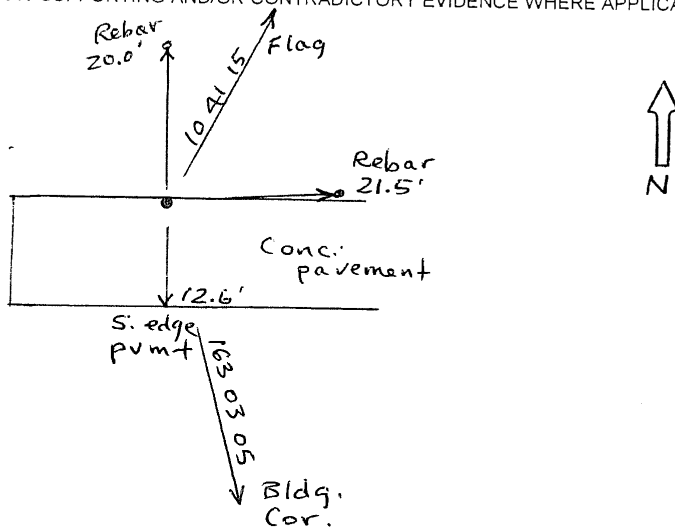 SUPPORTING AND/OR CONTRADICTORY EVIDENCE WHERE APPLICA
Rebar
20.0'
Flag
10 41 15
N
Rebar
21.5'
Conc.
pavement
12.6'
S. edge
pvmt
163 03 05
Bldg.
Cor.